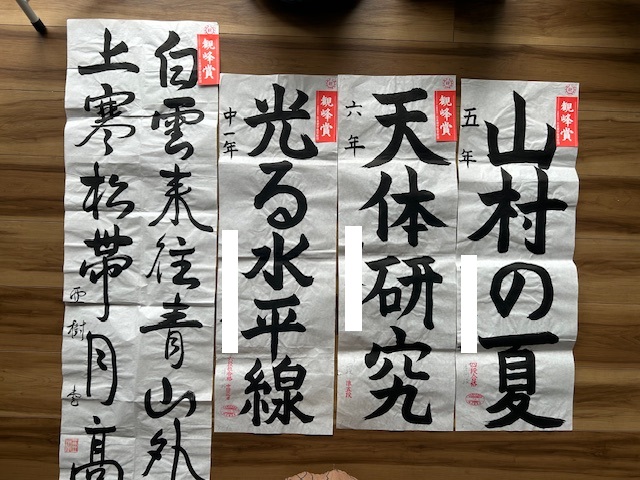 観峰賞
山村の夏
五年
観峰賞
天体研究
六年
観峰賞
光る水平線
中一年
観峰賞
白雲来往青山外
上寒松帯月高
雨樹